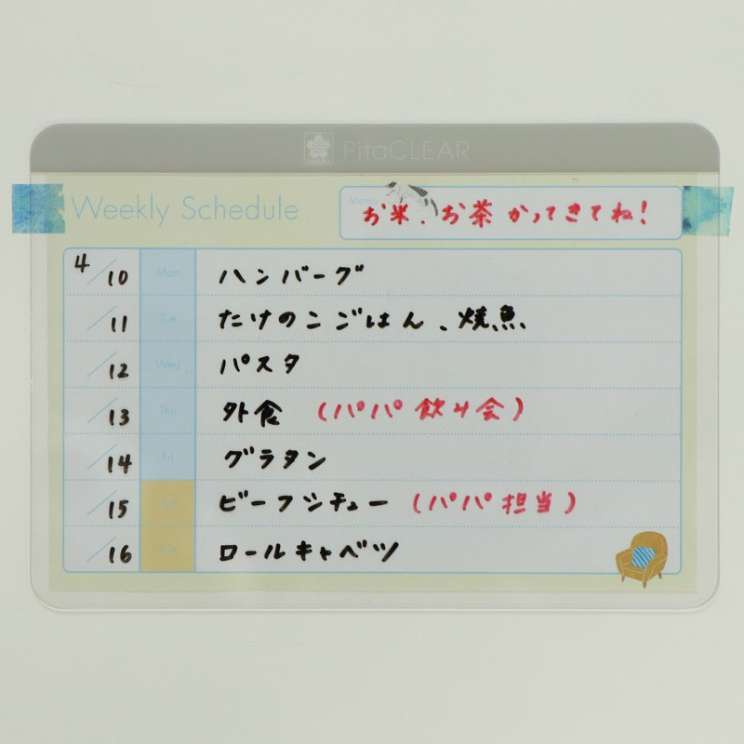 PitaCLEAR
Weekly Schedule
Memo
お米、お茶かってきてね!
4/10 Mon ハンバーグ
/11 Tue たけのこごはん、焼魚
/12 Wed パスタ
/13 Thu 外食 (パパ飲み会)
/14 Fri グラタン
/15 ビーフシチュー (パパ担当)
/16 ロールキャベツ